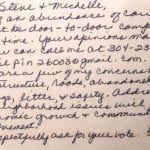 Steve & Michelle,
an abundance of cau
t be door-to-door comp
time. Your opinions ma
u can call me at 301-23
il pin260030@gmail.com.
are a few of my concern
tructure, Roads, abandoned
g, litter, & safety. Addre
ighborhood issues will
nomic growth & commun
vement!
espectfully ask for your vote.